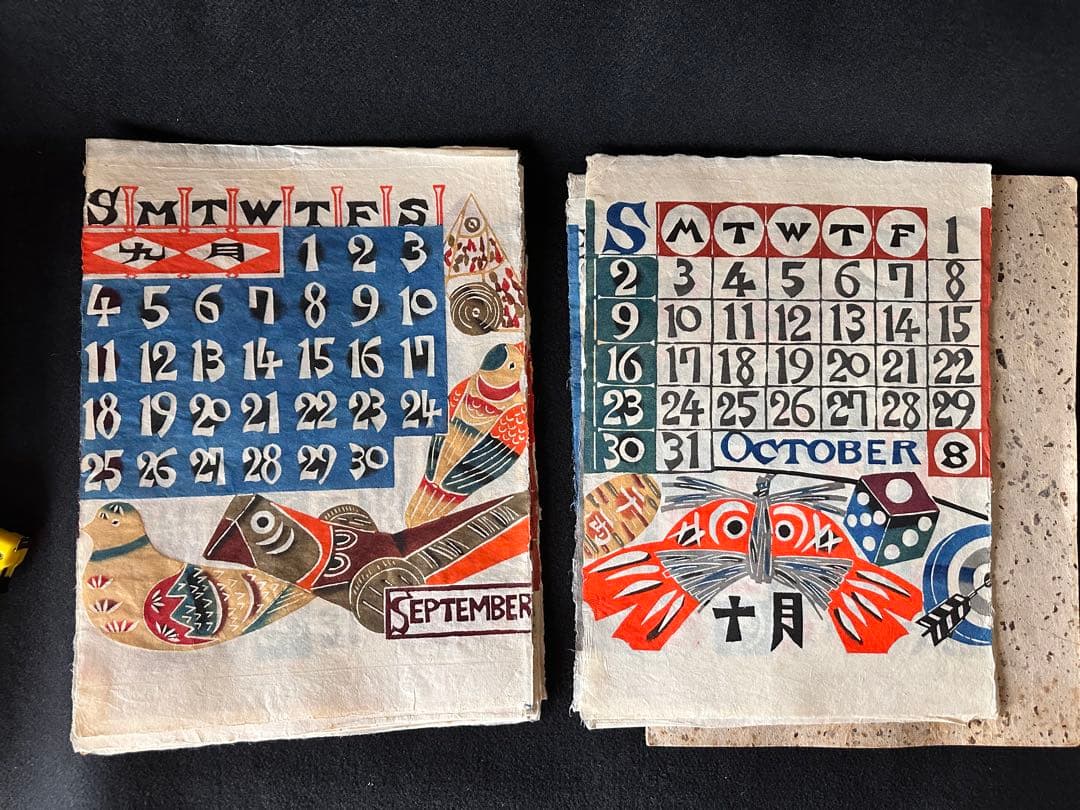 S M T W T F S
九月 1 2 3
4 5 6 7 8 9 10
11 12 13 14 15 16 17
18 19 20 21 22 23 24
25 26 27 28 29 30
SEPTEMBER
S M T W T F 1
2 3 4 5 6 7 8
9 10 11 12 13 14 15
16 17 18 19 20 21 22
23 24 25 26 27 28 29
30 31 OCTOBER 8
十月